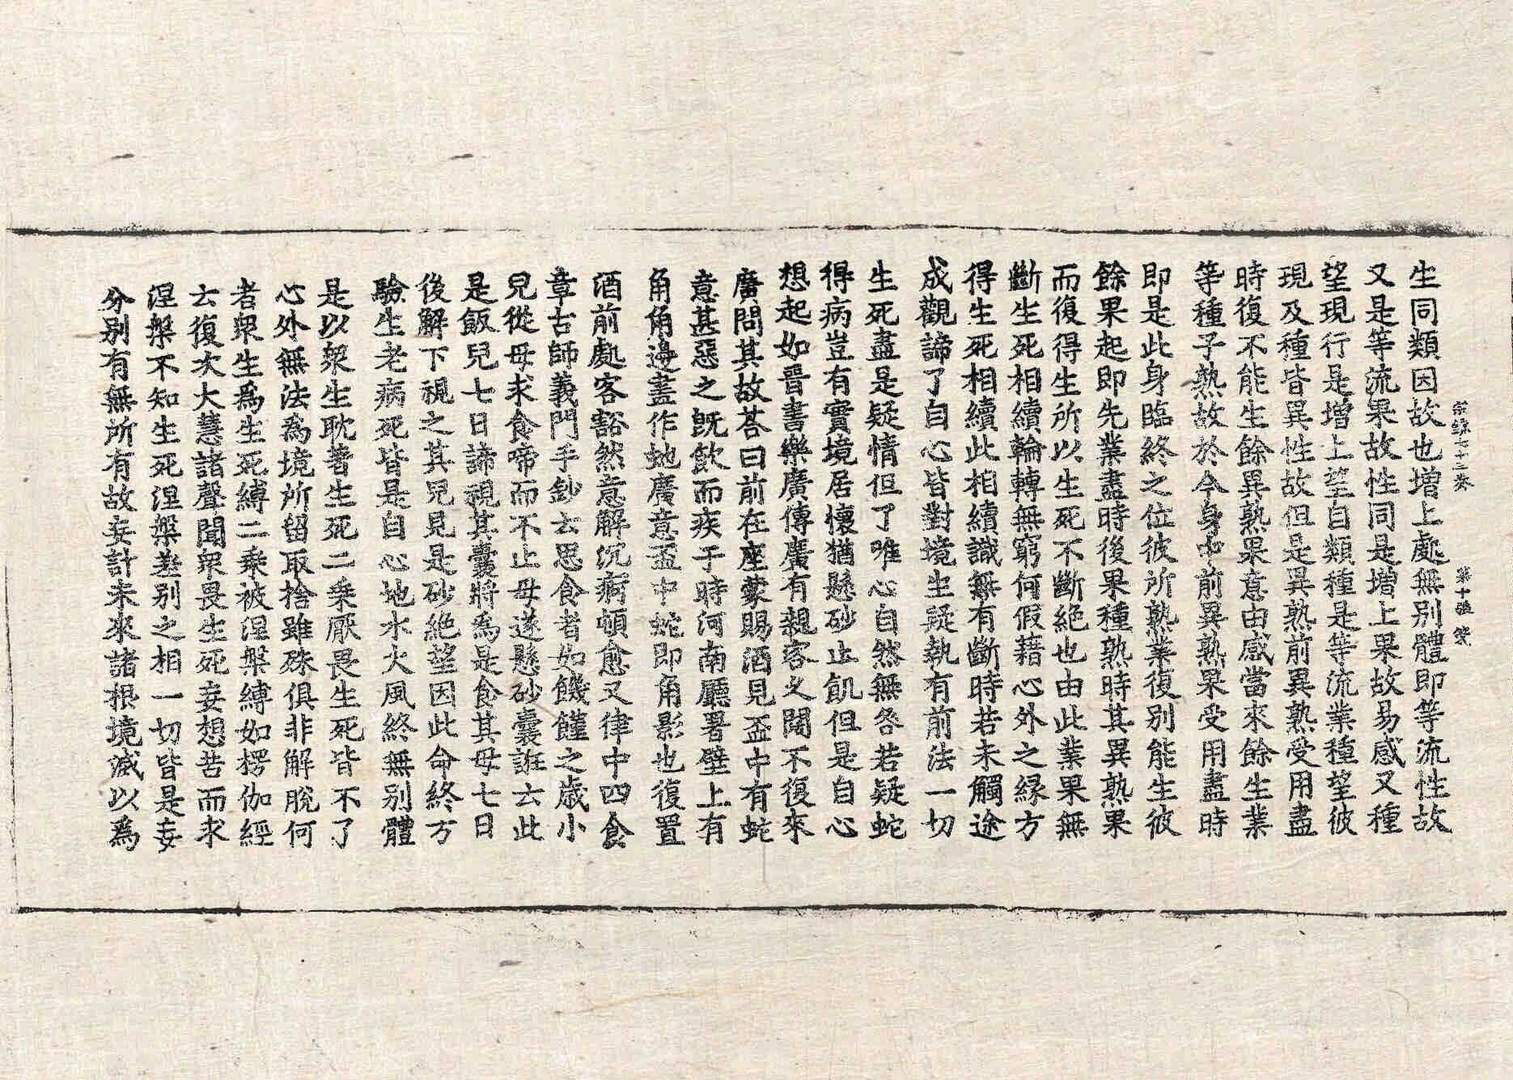 宗錄七十三卷 第十張 漆
生同類因故也增上處無別體即等流性故
又是等流果故性同是增上果故易感又種
望現行是增上望自類種是等流業種望彼
現及種皆異性故但是異熟前異熟受用盡
時復不能生餘異熟果意由感當來餘生業
等種子熟故於今身中前異熟果受用盡時
即是此身臨終之位彼所熟業復別能生彼
餘果起即先業盡時後果種熟時其異熟果
而復得生所以生死不斷絕也由此業果無
斷生死相續輪轉無窮何假藉心外之緣方
得生死相續此相續識無有斷時若未觸途
成觀諦了自心皆對境生疑執有前法一切
生死盡是疑情但了唯心自然無咎若疑蛇
得病豈有實境居懷猶懸砂止飢但是自心
想起如晉書樂廣傳廣有親客久闊不復來
廣問其故荅曰前在座蒙賜酒見盃中有蛇
意甚惡之旣飮而疾于時河南廳署壁上有
角角邊畫作虵廣意盃中蛇即角影也復置
酒前處客豁然意解沉痾頓愈又律中四食
章古師義門手鈔云思食者如饑饉之歲小
兒從母求食啼而不止母遂懸砂囊誑云此
是飯兒七日諦視其囊將為是食其母七日
後解下視之其兒見是砂絕望因此命終方
驗生老病死皆是自心地水火風終無別體
是以衆生耽著生死二乘厭畏生死皆不了
心外無法爲境所留取捨雖殊俱非解脫何
者衆生爲生死縛二乘被涅槃縛如楞伽經
云復次大慧諸聲聞衆畏生死妄想苦而求
涅槃不知生死涅槃差別之相一切皆是妄
分別有無所有故妄計未來諸根境滅以爲